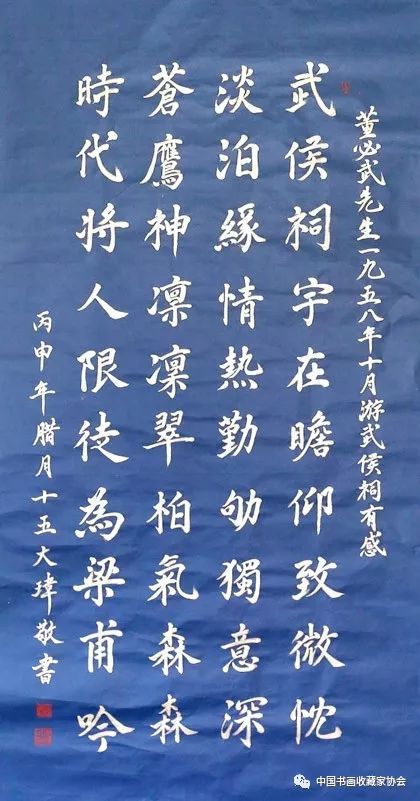 董必武先生一九五八年十月游武侯祠有感
武侯祠宇在瞻仰致微忱
淡泊緣情熱勤劬獨意深
蒼鷹神凛凛翠柏氣森森
時代将人限徒為梁甫吟
丙申年腊月十五大瑋敬書
中国书画收藏家协会